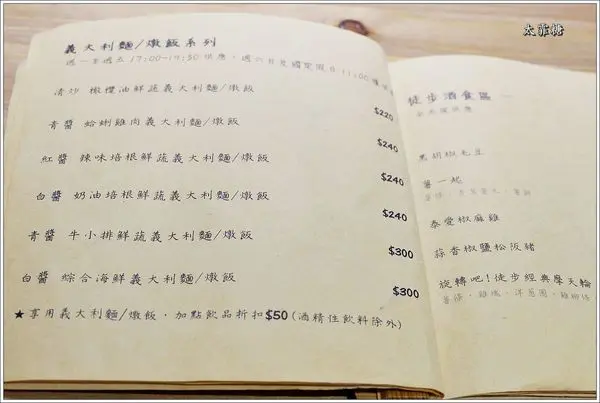 太菲糖
義大利麵/燉飯系列
週一至週五 17:00~19:30 供應,週六日及國定假日 11:00
清炒 橄欖油鮮蔬義大利麵/燉飯
$220
青醬 蛤蜊雞肉義大利麵/燉飯
$240
紅醬 辣味培根鮮蔬義大利麵/燉飯
$240
白醬 奶油培根鮮蔬義大利麵/燉飯
$240
青醬 牛小排鮮蔬義大利麵/燉飯
$300
白醬 綜合海鮮義大利麵/燉飯
$300
★享用義大利麵/燉飯,加點飲品折扣$50(酒精性飲料除外)
徒步酒食區
黑胡椒毛豆
薯一起
泰愛椒麻雞
蒜香椒鹽松阪豬
旋轉吧!徒步經典摩天輪
薯條,雞塊,洋蔥圈,雞柳條